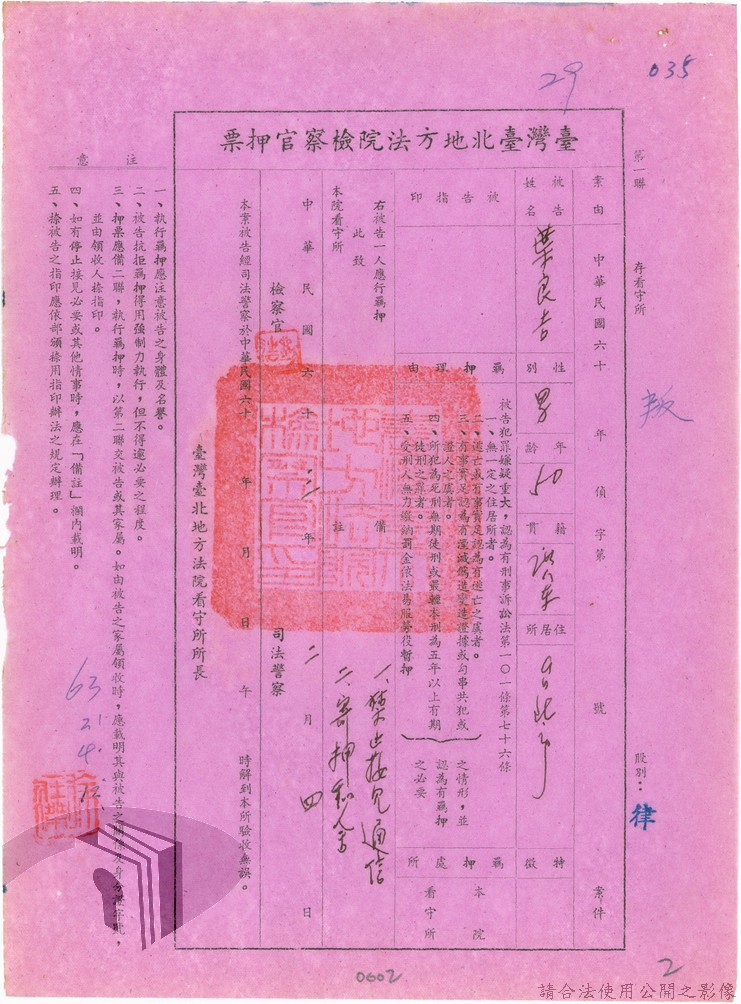 035
29
臺灣臺北地方法院檢察官押票
第一聯　存看守所　股別：律
叛
案由　中華民國六十　年　偵字第　號　案件
被告姓名　葉良吉　性別　男　年齡　50　籍貫　住居所　特徵
被告指印
羈押理由
被告犯罪嫌疑重大，認為有刑事訴訟法第一〇一條第七十六條
一、無一定之住居所者。
二、逃亡或有事實足認為有逃亡之虞者。
三、有事實足認為有湮滅偽造變造證據或勾串共犯或
證人之虞者。
四、所犯為死刑無期徒刑或最輕本刑為五年以上有期
徒刑之罪者。
五、受刑人無力繳納罰金依法易服勞役暫押
之情形，並
認為有羈押
之必要
羈押處所　本院看守所
備註
一、禁止接見通信
二、寄押
右被告一人應行羈押
此致
本院看守所
中華民國六十三年二月四日
檢察官
司法警察
本案被告經司法警察於中華民國六十　年　月　日　午　時解到本所驗收無誤。
臺灣臺北地方法院看守所所長
注意
一、執行羈押應注意被告之身體及名譽。
二、被告抗拒羈押得用強制力執行，但不得逾必要之程度。
三、押票應備二聯，執行羈押時，以第二聯交被告或其家屬。如由被告之家屬領收時，應載明其與被告之關係及身分證字號，
並由領收人捺指印。
四、如有停止接見必要或其他情事時，應在「備註」欄內載明。
五、捺被告之指印應依部頒捺用指印辦法之規定辦理。
63
2
0002
2
請合法使用公開之影像